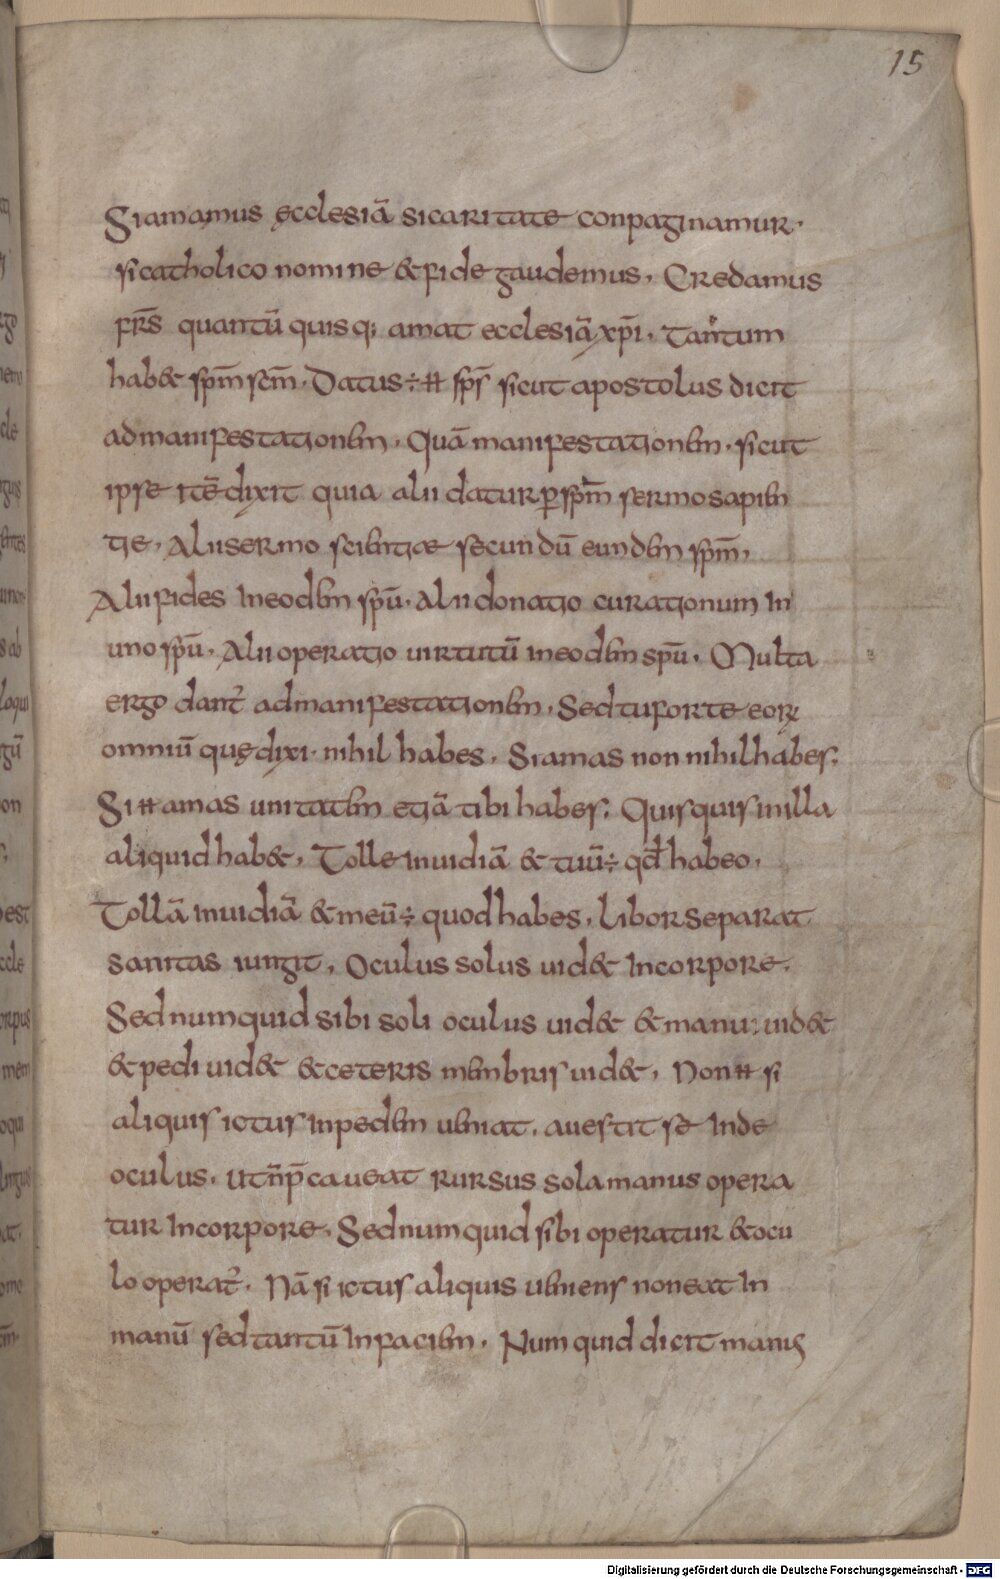 15
Siamamus ęcclesiā sicaritate conpaginamur.
sicatholico nomine &fide gaudemus. Credamus
frs̄ quantū quisq; amat ecclesiā xp̄i. tantum
hab& sp̄m sc̄m. Datus÷ ħ sp̄s sicut apostolus dicit
admanifestationem. Quā manifestationem. sicut
ipse itē dixit quia alii datur ꝑ sp̄m sermo sapien
tie. Alii sermo scientiae secundū eundem sp̄m.
Alii fides Ineodem sp̄u. Alii donatio curationum In
uno sp̄u. Alii operatio uirtutū ineodem sp̄u. Multa
ergo dant᷑ admanifestationem. Sed tu forte eoꝝ
omniū quę dixi. nihil habes. Si amas non nihil habes.
Si ħ amas unitatem etiā tibi habes. Quisquis inilla
aliquid hab&. Tolle inuidiā & tuū÷ qđ habeo.
Tollā inuidiā & meū÷ quod habes. Libor separat
sanitas iungit. Oculus solus uid& Incorpore.
Sed numquid sibi soli oculus uid& &manui uid&
&pedi uid& &ceteris membris uid&. Non ħ si
aliquis ictus Inpedem ueniat. auertit se Inde
oculus. Ut n̄ p̄caueat rursus sola manus opera
tur Incorpore. Sed numquid sibi operatur &ocu
lo operat᷑. Nā si ictus aliquis ueniens non eat In
manū sed tantū Infaciem. Numquid dicit manus
Digitalisierung gefördert durch die Deutsche Forschungsgemeinschaft - DFG